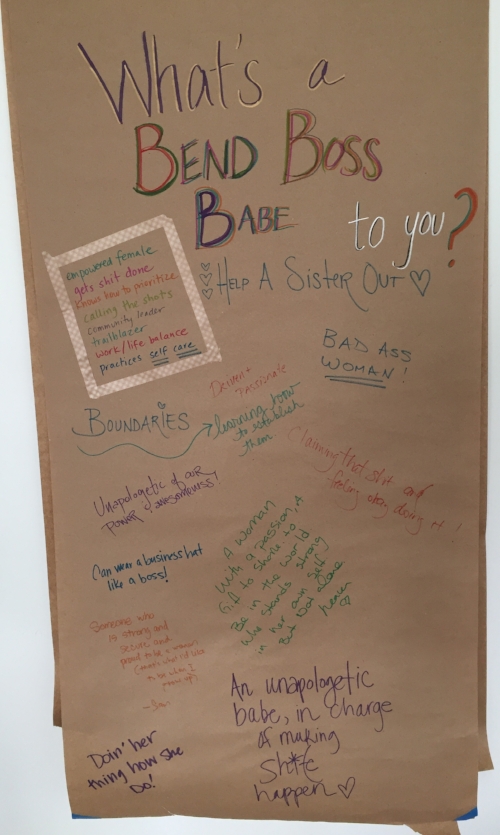 What's a
BEND BOSS
BABE to you?
HELP A SISTER OUT ♡
empowered female
gets shit done
knows how to prioritize
calling the shots
community leader
trailblazer
work/life balance
practices self care
BAD ASS
WOMAN!
Driven +
Passionate
BOUNDARIES
learning how
to establish
them
Claiming that shit and
feeling okay doing it!
Unapologetic of our
power & awesomeness!
Can wear a business hat
like a boss!
A WOMAN
With a passion, A
G.D to share to
BE in the world
who stands strong
in her own self
BUT Not alone
Someone who
is strong and
secure and
proud to be a woman
to be when I
grow up)
An unapologetic
babe, in charge
of making
sh*te
happen ♡
Doin' her
thing how she
do!